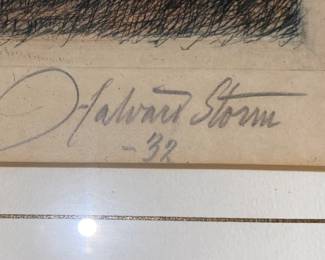 Halvard Storm
-'32